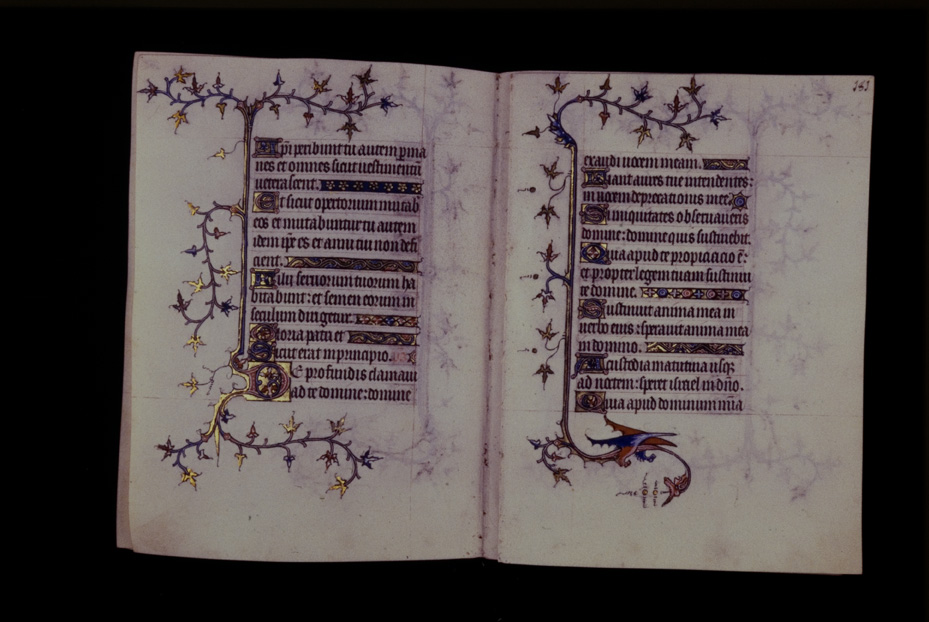 Ipi peribunt tu autem pma
nes et omnes sicut vestimentū
veterascent.
Et sicut opertorium mutab
eos et mutabuntur tu autem
idem ipē es et anni tui non defi
cient.
Filii servorum tuorum ha
bitabunt: et semen eorum in
seculum dirigetur.
Gloria patri et
Sicut erat in principio.
De profundis clamavi
ad te domine: domine
283
exaudi vocem meam.
Fiant aures tue intendentes:
in vocem deprecationis mee
Si iniquitates observaveris
domine: domine quis sustinebit.
Quia apud te propiciacio ē:
et propter legem tuam sustinui
te domine.
Sustinuit anima mea in
verbo eius: speravit anima mea
in domino.
A custodia matutina usq
ad noctem: speret israel in dno.
Quia apud dominum mia